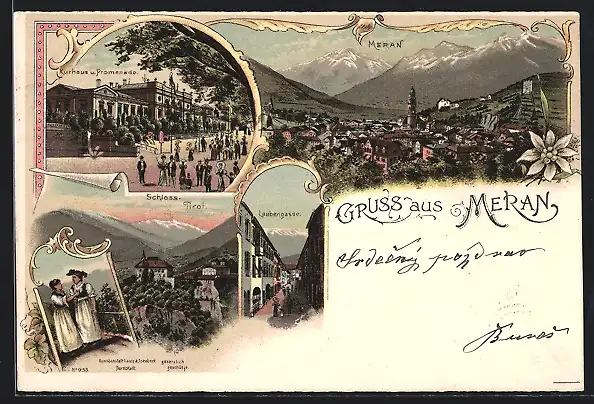 Kurhaus u. Promenade.
MERAN
Schloss-
Tirol.
Laubengasse.
GRUSS aus MERAN
Srdečný pozdrav
Kunstanstalt Lautz & Isenbeck
Darmstadt
gesetzlich
geschützt.
No 933